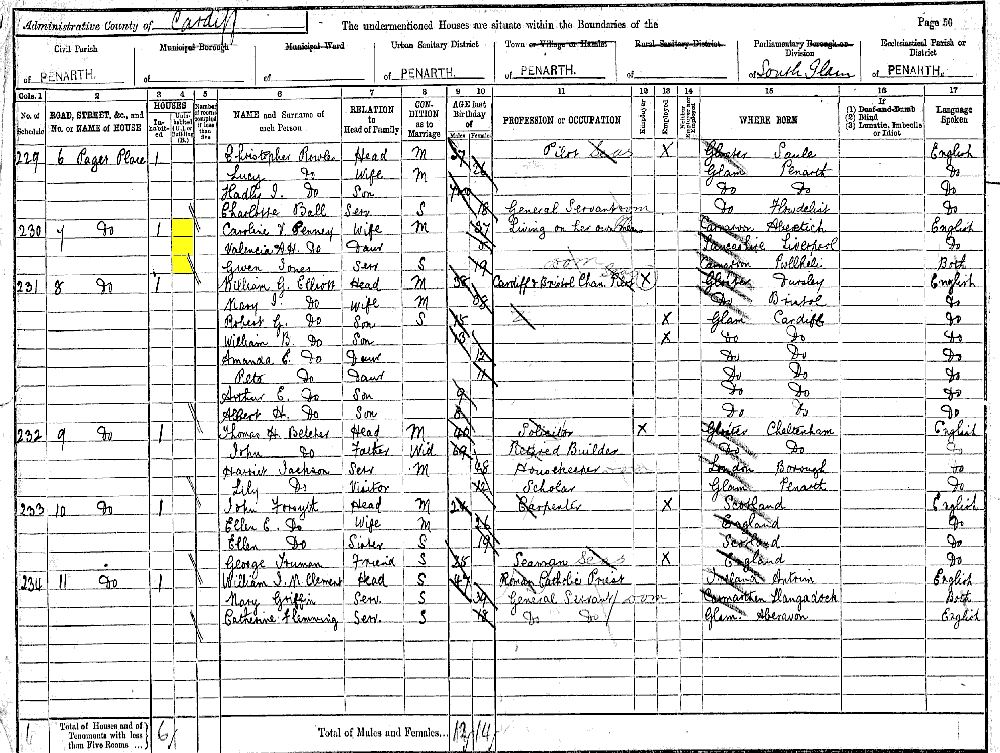 Administrative County of Cardiff The undermentioned Houses are situate within the Boundaries of the Page 56
Civil Parish Municipal Borough Municipal Ward Urban Sanitary District Town or Village or Hamlet Rural Sanitary District Parliamentary Borough or Division Ecclesiastical Parish or District
of PENARTH. of of of PENARTH. of PENARTH. of of South Glam of PENARTH.
Cols. 1 2 3 4 5 6 7 8 9 10 11 12 13 14 15 16 17
No. of Schedule ROAD, STREET, &c., and No. or NAME of HOUSE HOUSES Inhabited Uninhabited (U.), or Building (B.) Number of rooms occupied if less than five NAME and Surname of each Person RELATION to Head of Family CONDITION as to Marriage AGE last Birthday of Males Females PROFESSION or OCCUPATION Employer Employed Neither Employer nor Employed WHERE BORN If (1) Deaf-and-Dumb (2) Blind (3) Lunatic, Imbecile or Idiot Language Spoken
229 6 Place 1 Christopher Rowles Head M 37 Pilot X Gloster English
Lucy Do Wife M Glam Penarth Do
Hadly I. Do Son Do Do Do
Charlotte Ball Serv. S 18 General Servant Do Do
230 7 Do 1 Caroline V. Penney Wife M 37 Living on her own Means English
Valencia A.H. Do Daur Lancashire Liverpool Do
Gwen Jones Serv S 19 Carnarvon Pwllheli Both
231 8 Do 1 William G. Elliott Head M 38 Cardiff & Bristol Chan. X Gloster Dursley English
Mary J. Do Wife M 38 Do Bristol Do
Robert G. Do Son S 15 X Glam Cardiff Do
William B. Do Son 13 X Do Do Do
Amanda E. Do Daur 12 Do Do Do
Do Daur 11 Do Do Do
Arthur E. Do Son 9 Do Do Do
Albert H. Do Son 8 Do Do Do
232 9 Do 1 Thomas H. Belcher Head M 40 Solicitor X Gloster Cheltenham English
John Do Father Wid 69 Retired Builder Do Do Do
Harriet Jackson Serv M 38 Housekeeper London Borough Do
Lily Do Visitor 12 Scholar Glam Penarth Do
233 10 Do 1 John Forsyth Head M 26 Carpenter X Scotland English
Ellen E. Do Wife M 26 England Do
Ellen Do Sister S 19 Scotland Do
George Truman Friend S 28 Seaman X England Do
234 11 Do 1 William I. Clement Head S 47 Roman Catholic Priest Ireland Antrim English
Mary Griffin Serv. S 39 General Servant Carmarthen Llangadock Both
Catherine Flemming Serv. S 18 Do Do Glam. Aberavon English
Total of Houses and of Tenements with less than Five Rooms ... 6 Total of Males and Females... 13 14